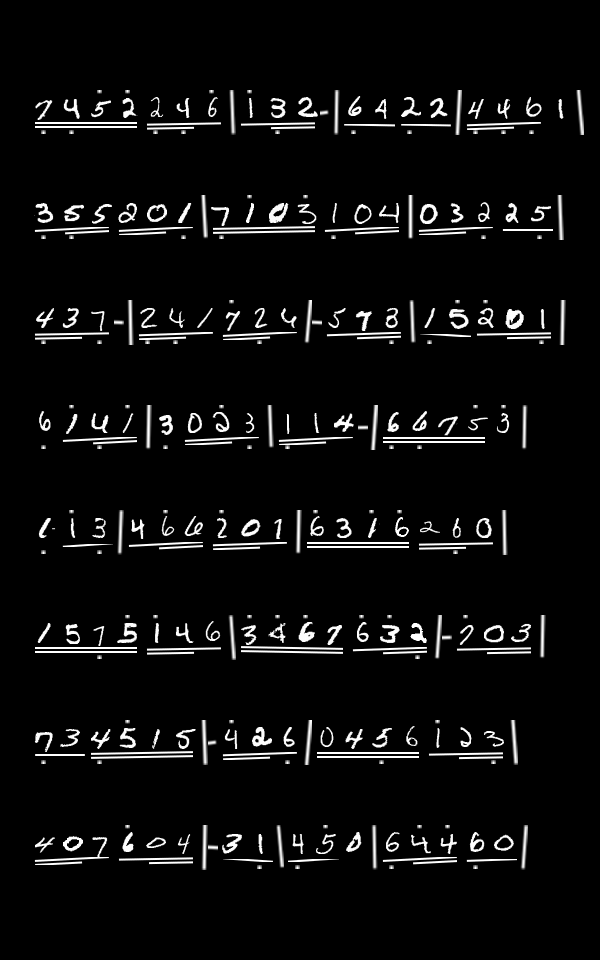 7452246|132-|6422|4461|
355201|7103104|03225|
437-|241724|-578|15201|
6141|3023|114-|66753|
1·13|466201|6316260|
1575146|3467632|-703|
734515|-426|0456123|
407604|-31|450|64460|